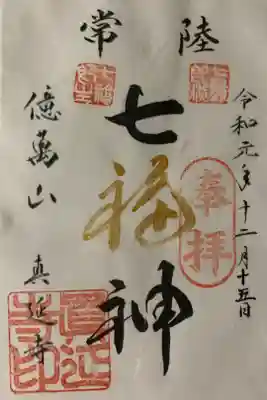 令和元年十二月十五日
奉拝
常陸
七福神
億萬山 真延寺